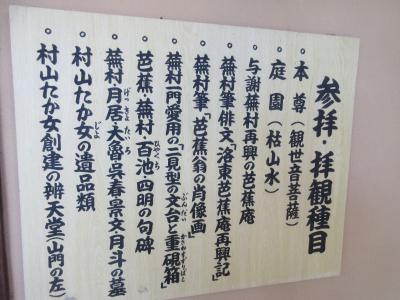 参拝・拝観種目
本尊(観世音菩薩)
庭園(枯山水)
与謝蕪村再興の芭蕉庵
蕪村筆俳文「洛東芭蕉庵再興記」
蕪村筆「芭蕉翁の肖像画」
蕪村一門愛用の「二見型の文台と重硯箱」
芭蕉・蕪村・百池・四明の句碑
蕪村・月居・大魯・呉春・景文・月斗の墓
村山たか女の遺品類
村山たか女創建の辨天堂(山門の左)